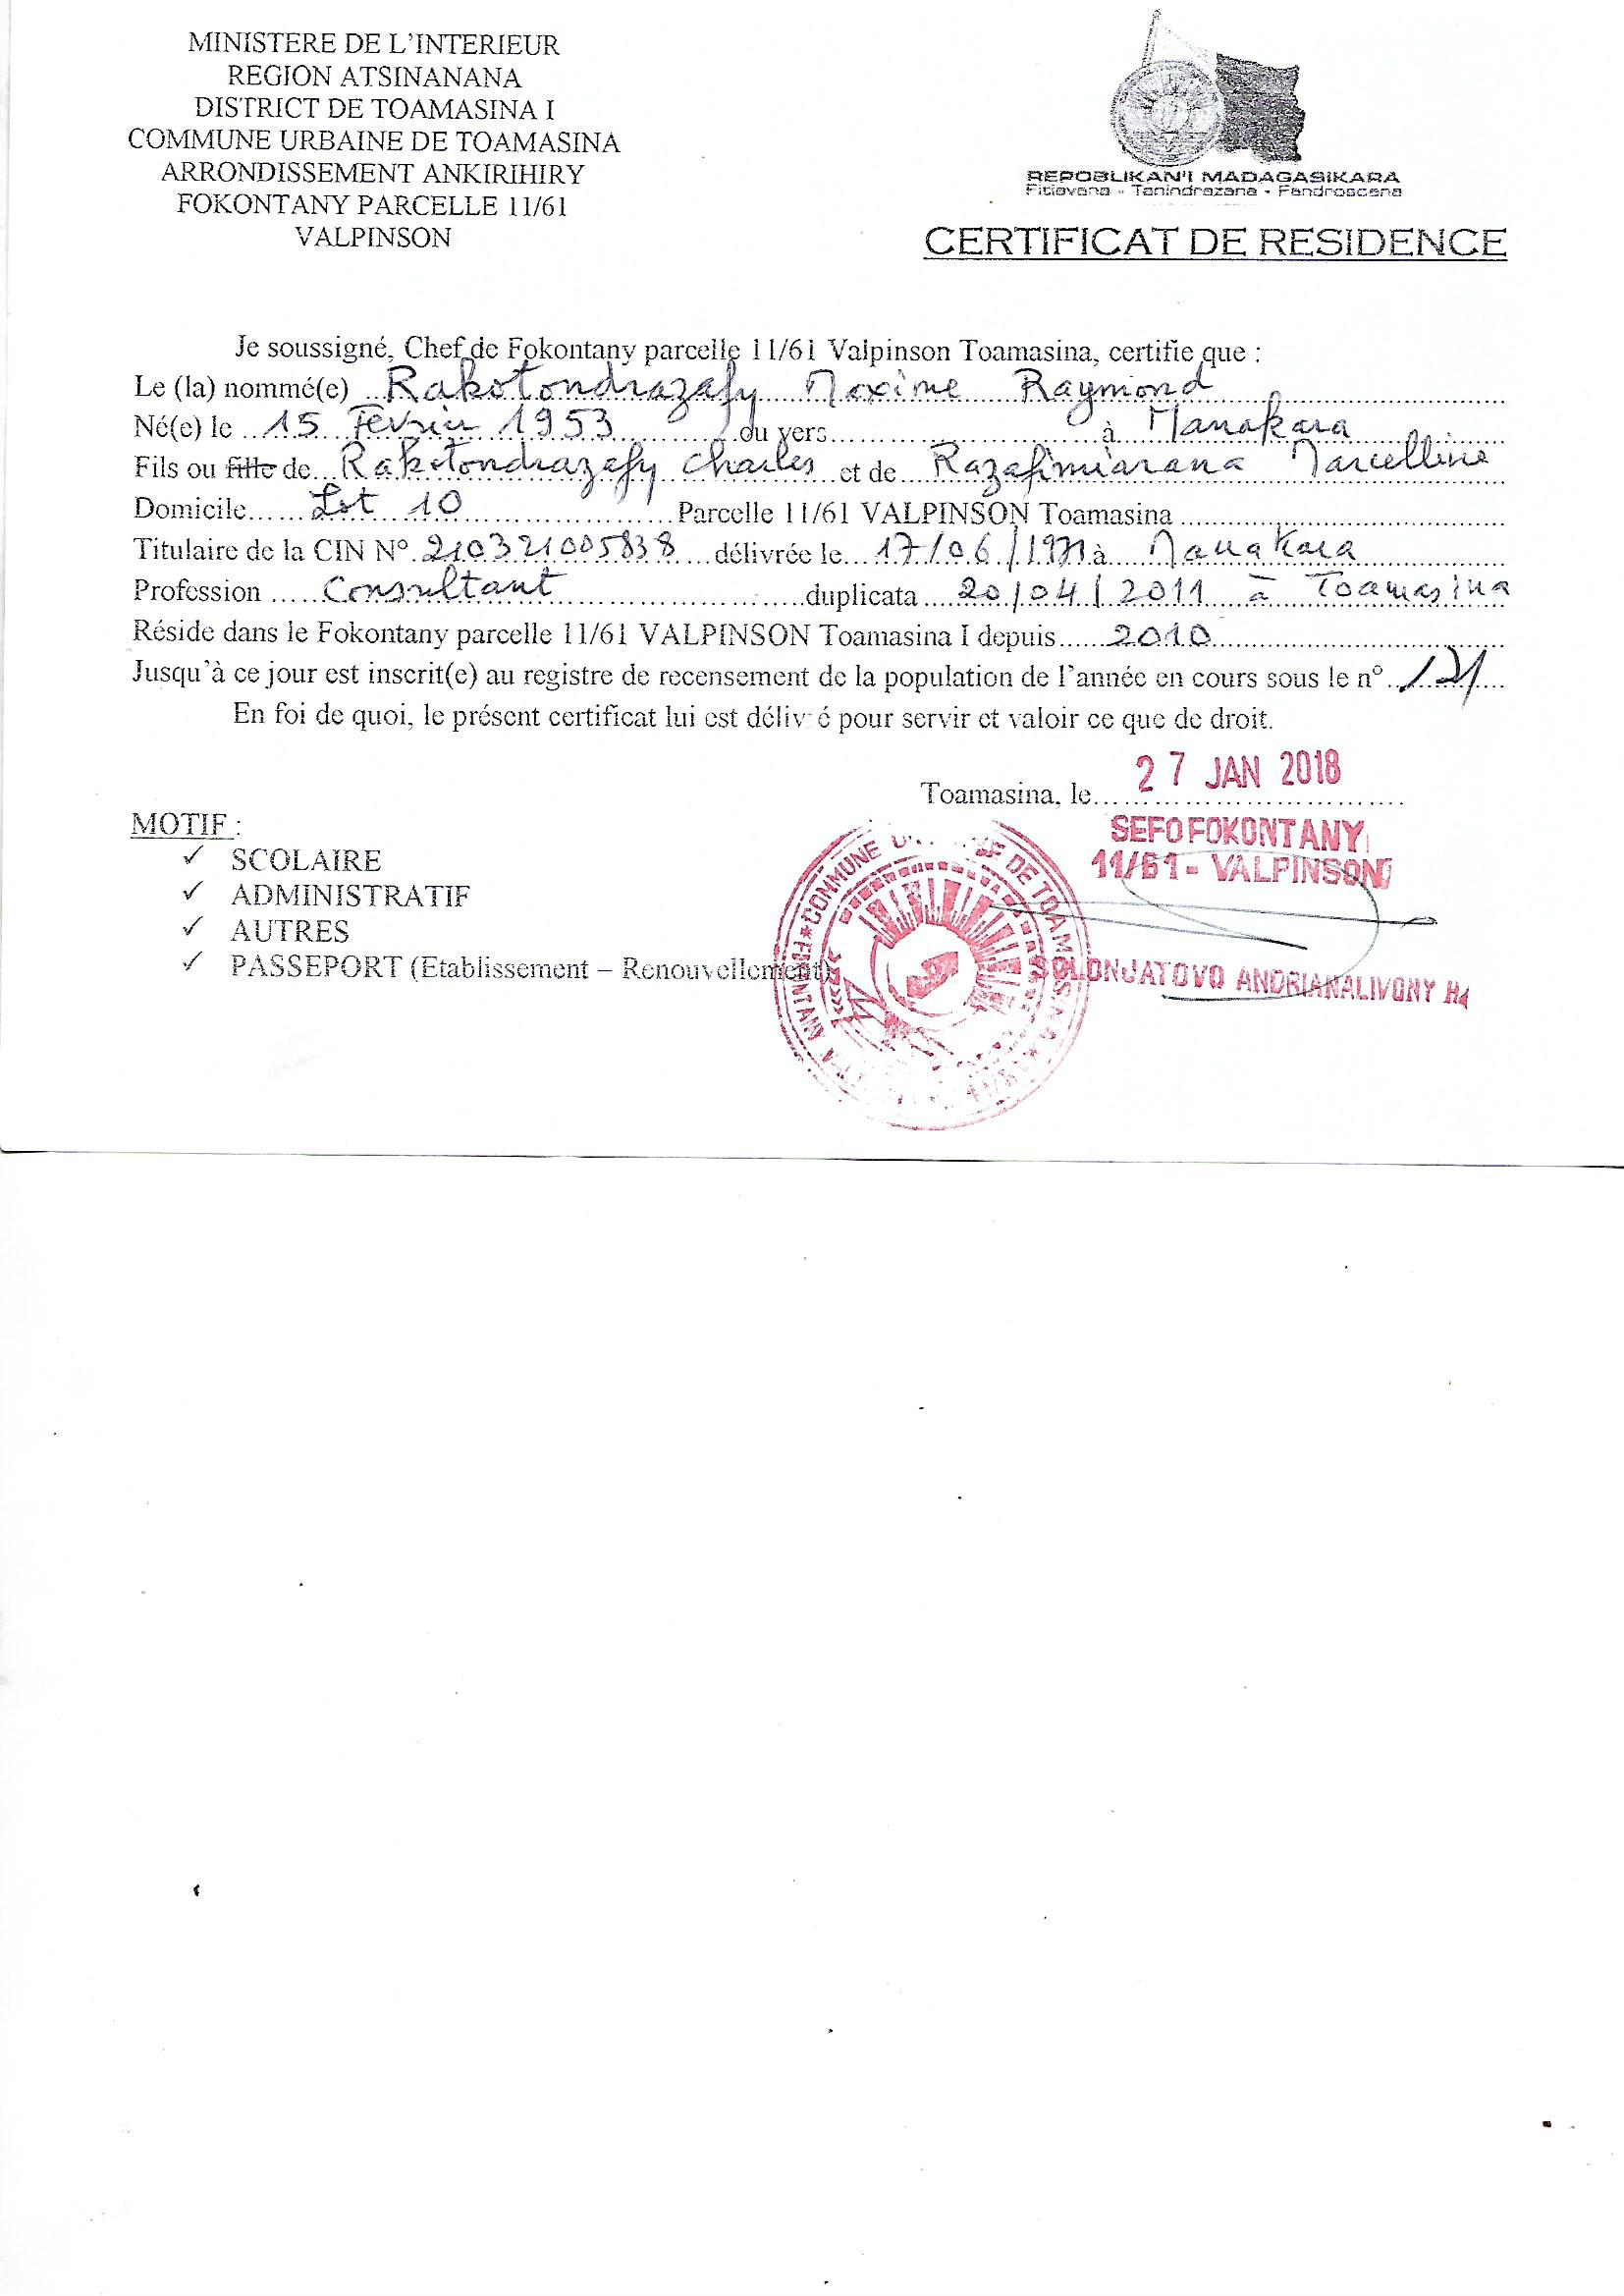 MINISTERE DE L'INTERIEUR
REGION ATSINANANA
DISTRICT DE TOAMASINA I
COMMUNE URBAINE DE TOAMASINA
ARRONDISSEMENT ANKIRIHIRY
FOKONTANY PARCELLE 11/61
VALPINSON
REPOBLIKAN'I MADAGASIKARA
Fitiavana - Tanindrazana - Fandrosoana
CERTIFICAT DE RESIDENCE
Je soussigné, Chef de Fokontany parcelle 11/61 Valpinson Toamasina, certifie que :
Le (la) nommé(e) Rakotondrazafy Maxime Raymond
Né(e) le 15 Février 1953 ou vers à Manakara
Fils ou fille de Rakotondrazafy Charles et de Razafimiarana Marcelline
Domicile Lot 10 Parcelle 11/61 VALPINSON Toamasina
Titulaire de la CIN N° 210321005838 délivrée le 17/06/1971 à Manakara
Profession Consultant duplicata 20/04/2011 à Toamasina
Réside dans le Fokontany parcelle 11/61 VALPINSON Toamasina I depuis 2010
Jusqu'à ce jour est inscrit(e) au registre de recensement de la population de l'année en cours sous le n°
En foi de quoi, le présent certificat lui est délivré pour servir et valoir ce que de droit.
Toamasina, le 27 JAN 2018
SEFO FOKONTANY
11/61 - VALPINSON
MOTIF :
✓ SCOLAIRE
✓ ADMINISTRATIF
✓ AUTRES
✓ PASSEPORT (Etablissement – Renouvellement)
COMMUNE DE TOAMASINA
SOLONJATOVO ANDRIANALIVONY